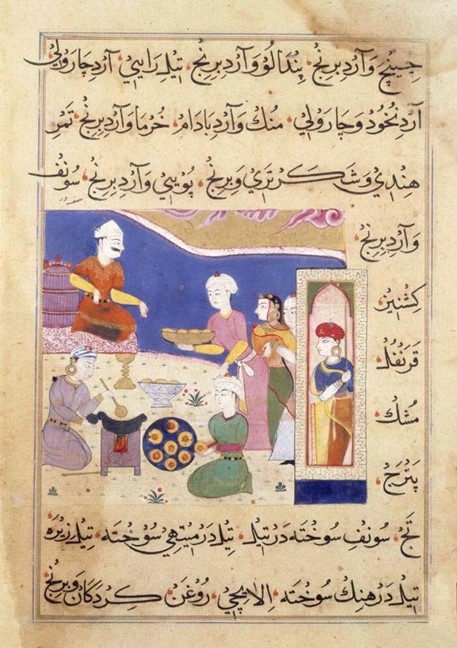 چینچ وآرد برنج پندالو وآرد برنج تیل رایی آرد چارولی
آرد نخود و چارولی منک وآرد بادام خرما وآرد برنج تمر
هندی و شکر تری و برنج پویی وآرد برنج سونف
وآرد برنج
کشنیز
قرنفل
مشک
پترج
تج سونف سوخته در تیل تیل در میتهی سوخته تیل زیره
تیل در هنک سوخته الایچی روغن کردکان و برنج